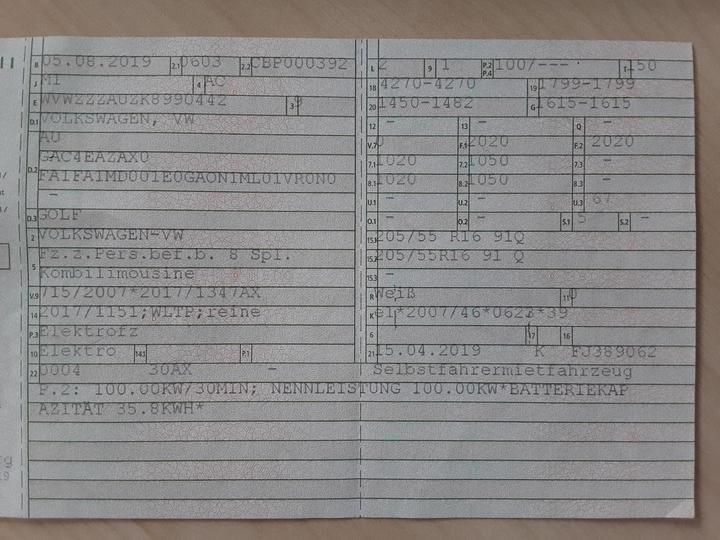 B 05.08.2019 2.1 0603 2.2 CBP000392
J M1 4 AC
E WVWZZZAUZK8990442 3 9
D.1 VOLKSWAGEN, VW
AU
D.2 GAC4EAZAX0
FA1FA1MD001E0GAON1ML01VR0N0
-
D.3 GOLF
2 VOLKSWAGEN-VW
5 Fz.z.Pers.bef.b. 8 Spl.
Kombilimousine
V.9 715/2007*2017/1347AX
14 2017/1151;WLTP;reine
P.3 Elektrofz
10 Elektro 14.1 P.1
L 2 9 1 P.2 P.4 100/--- T 150
18 4270-4270 19 1799-1799
20 1450-1482 G 1615-1615
12 - 13 - Q -
V.7 0 F.1 2020 F.2 2020
7.1 1020 7.2 1050 7.3 -
8.1 1020 8.2 1050 8.3 -
U.1 - U.2 - U.3 67
O.1 - O.2 - S.1 5 S.2 -
15.1 205/55 R16 91Q
15.2 205/55R16 91 Q
15.3 -
R Weiß 11 0
K e1*2007/46*0623*39
6 17 16
21 15.04.2019 K FJ389062
22 0004 30AX - Selbstfahrermietfahrzeug
P.2: 100.00KW/30MIN; NENNLEISTUNG 100.00KW*BATTERIEKAP
AZITÄT 35.8KWH*